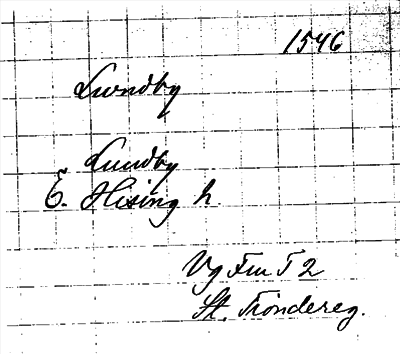 1546
Lundby
Lundby
E. Hising h
Vg Fru T 2
St. Tröndereg.